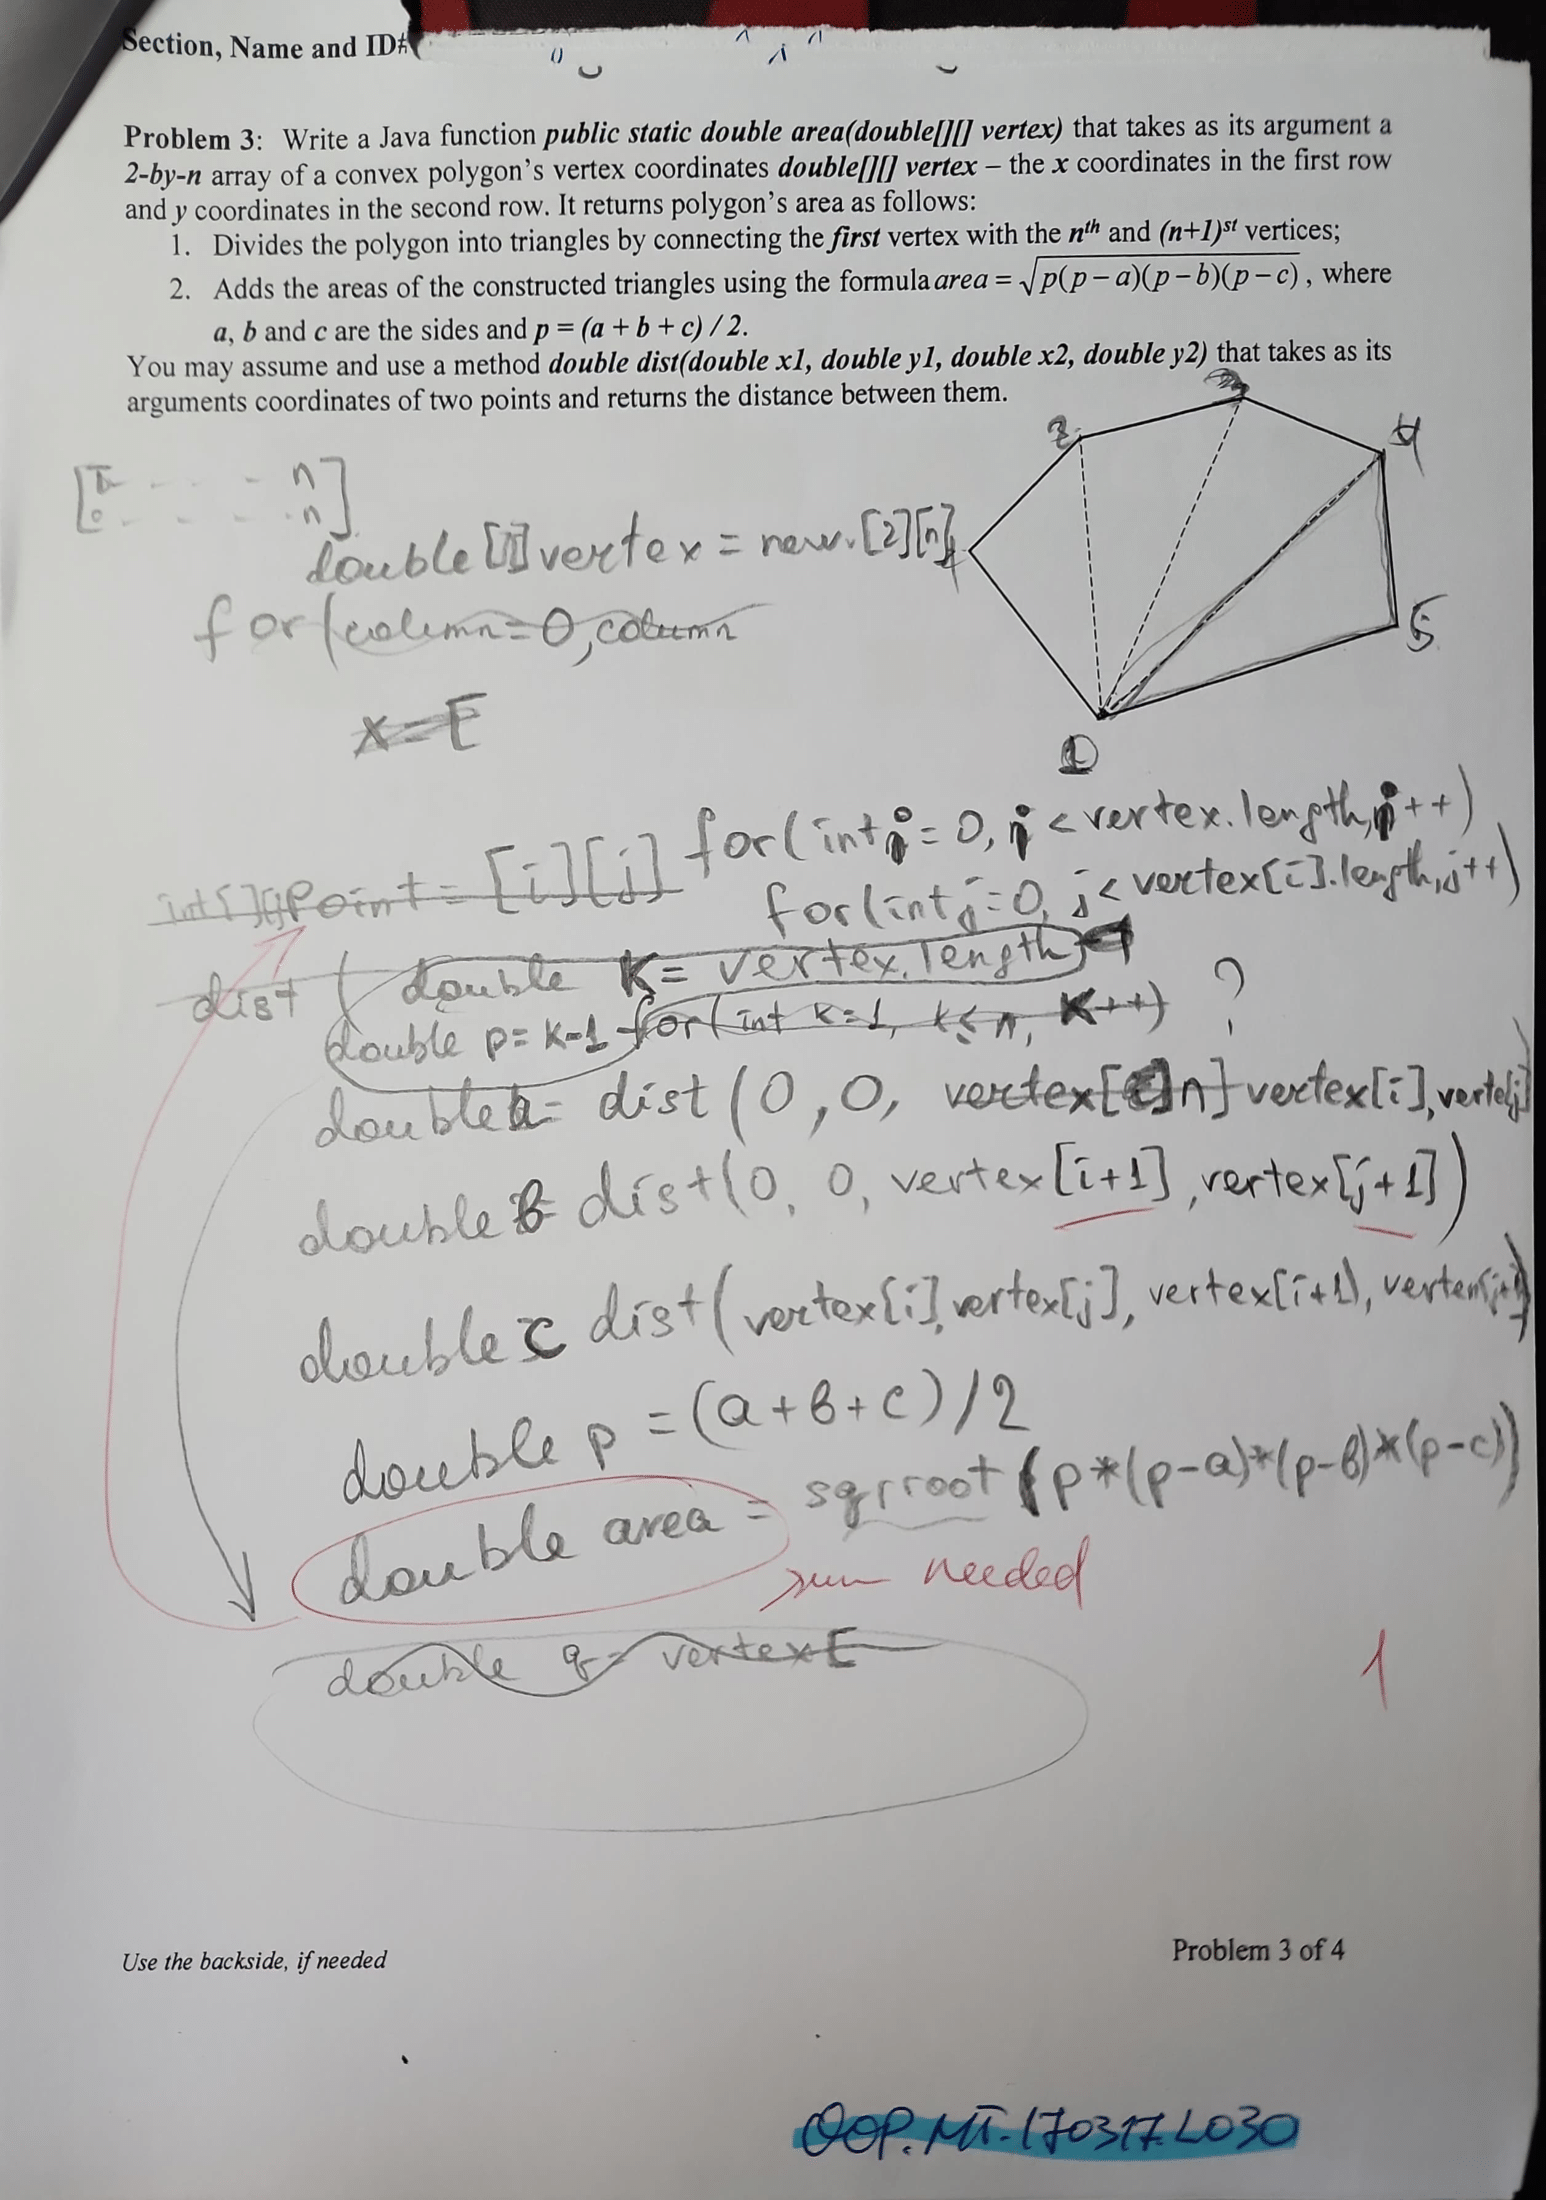 Section, Name and ID#
Problem 3: Write a Java function public static double area(double[][] vertex) that takes as its argument a
2-by-n array of a convex polygon's vertex coordinates double[][] vertex – the x coordinates in the first row
and y coordinates in the second row. It returns polygon's area as follows:
1. Divides the polygon into triangles by connecting the first vertex with the nth and (n+1)st vertices;
2. Adds the areas of the constructed triangles using the formula area = √p(p−a)(p−b)(p−c), where
a, b and c are the sides and p = (a + b + c) / 2.
You may assume and use a method double dist(double x1, double y1, double x2, double y2) that takes as its
arguments coordinates of two points and returns the distance between them.
2
4
[ - - - n
- - - n ]
double [][] vertex = new [2][n]
5
for (column=0, column
x=[
1
for(int i = 0, i < vertex.length, i++)
int[][] Point = [i][j]
for(int j=0, j< vertex[i].length, j++)
dist ( double K = vertex.length
double p = K-1 for( int k=1, k≤n, K++) ?
double a = dist (0, 0, vertex[ n] vertex[i], vertex[j]
double b = dist(0, 0, vertex [i+1], vertex[j+1])
double c dist(vertex[i], vertex[j], vertex[i+1], vertex[j+1])
double p = (a+b+c)/2
double area = sqrroot (p*(p-a)*(p-b)*(p-c))
sum needed
double q = vertex[
1
Use the backside, if needed
Problem 3 of 4
OOP.MT.170317.L030